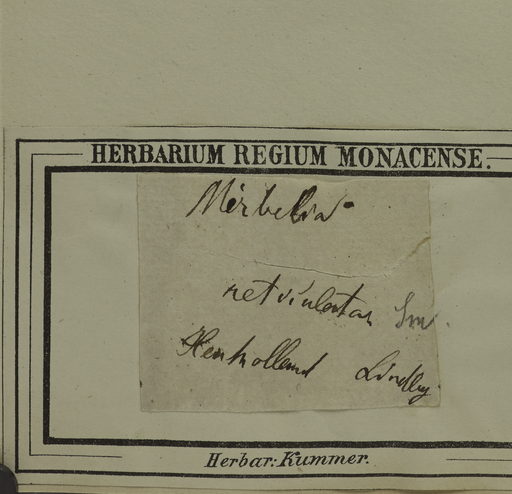 HERBARIUM REGIUM MONACENSE.
Mirbelia
reticulata Sm.
Neuholland Lindley
Herbar: Kummer.